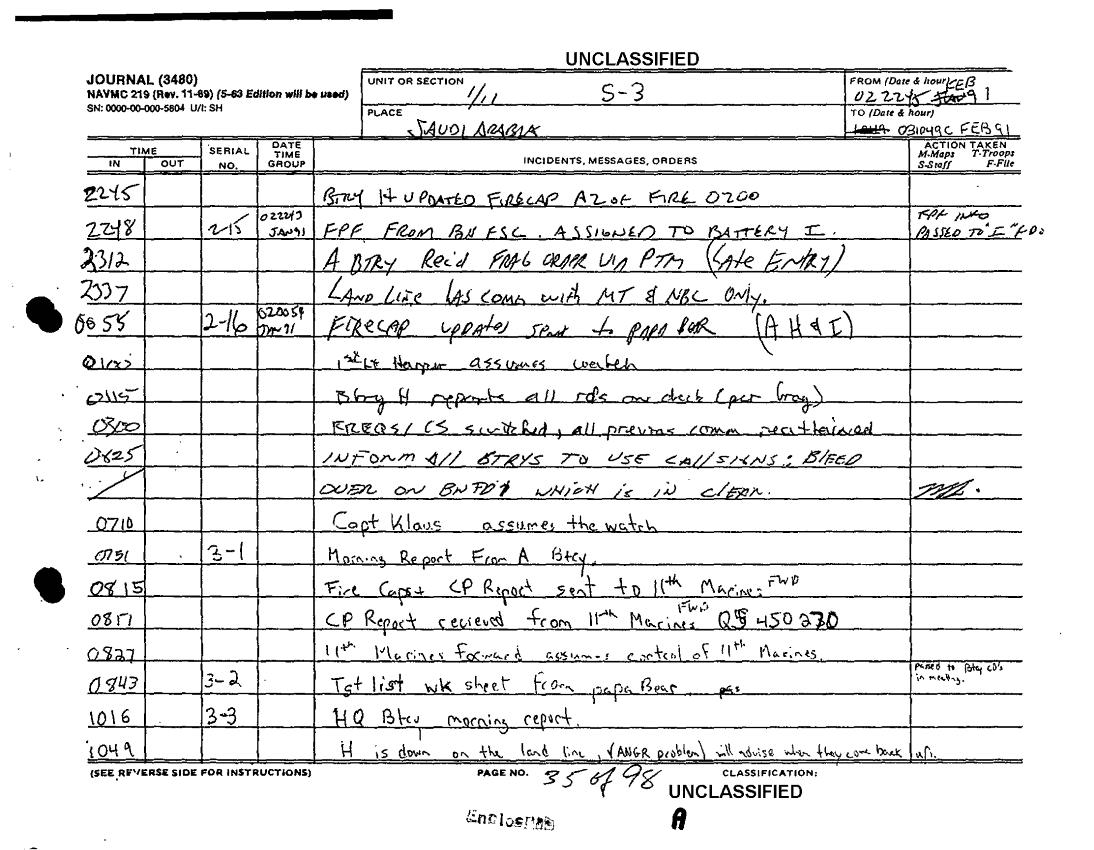 UNCLASSIFIED
JOURNAL (3480)
NAVMC 219 (Rev. 11-69) (5-63 Edition will be used)
SN: 0000-00-000-5804 U/I: SH
UNIT OR SECTION 1/11 S-3
PLACE SAUDI ARABIA
FROM (Date & hour) FEB
022245 91
TO (Date & hour)
031049C FEB 91
TIME IN OUT SERIAL NO. DATE TIME GROUP INCIDENTS, MESSAGES, ORDERS ACTION TAKEN M-Maps T-Troops S-Staff F-File
2245 BTRY H UPDATED FIRECAP AZ OF FIRE 0200
2248 2-15 022243 JAN 91 FPF FROM BN FSC. ASSIGNED TO BATTERY I. FPF INFO PASSED TO "I"
2312 A BTRY Rec'd FRAG ORDER VIA PTM (LATE ENTRY)
2337 LAND LINE HAS COMM with MT & NBC ONLY.
0055 2-16 020054 JAN 91 FIRECAP updates sent to PAPA BEAR (A H & I)
1st Lt Harper assumes watch
0115 Btry H reports all rds on deck (per Gray)
0300 FREQS/ CS switched, all previous comm
0625 INFORM All BTRYS TO USE CALLSIGNS; BLEED
OVER ON WHICH IS IN CLEAR.
0710 Capt Klaus assumes the watch
0751 3-1 Morning Report From A Btry.
0815 Fire Caps + CP Report sent to 11th Marines FWD
0817 CP Report recieved from 11th Marines FWD 450270
0827 11th Marines forward assumes control of 11th Marines.
0843 3-2 Tgt list wk sheet from papa Bear. passed to Btry CO's in meeting.
1016 3-3 HQ Btry morning report.
1049 H is down on the land line, (ANGR problem) will advise when they come back up.
(SEE REVERSE SIDE FOR INSTRUCTIONS) PAGE NO. 35 of 98 CLASSIFICATION:
UNCLASSIFIED
A